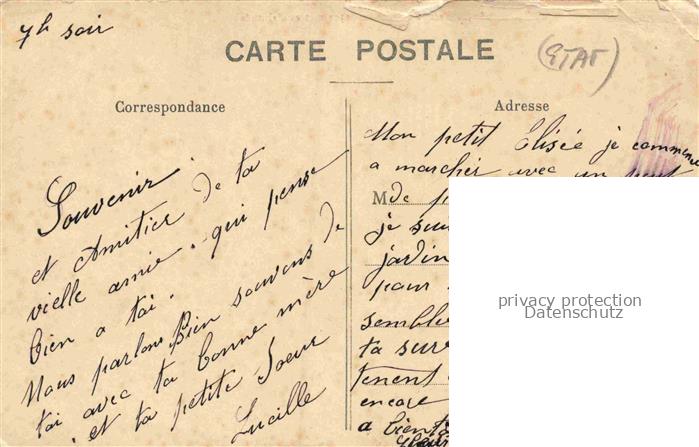 7h soir
CARTE POSTALE
(ETAT)
Correspondance
Adresse
Souvenir
et Amitier de ta
vielle amie. qui pense
bien a toi.
Nous parlons Bien souvens de
toi avec ta bonne mère
et ta petite Soeur
Lucille
Mon petit Elisée je commence
a marcher avec un peut
M de
je suis
jardin
pour
semble
ta
tenent
encore
a
privacy protection
Datenschutz